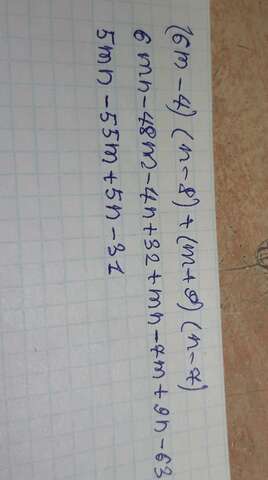 (6m-4)(n-8)+(m+9)(n-7)
6mn-48m-4n+32+mn-7m+9n-63
5mn-55m+5n-31